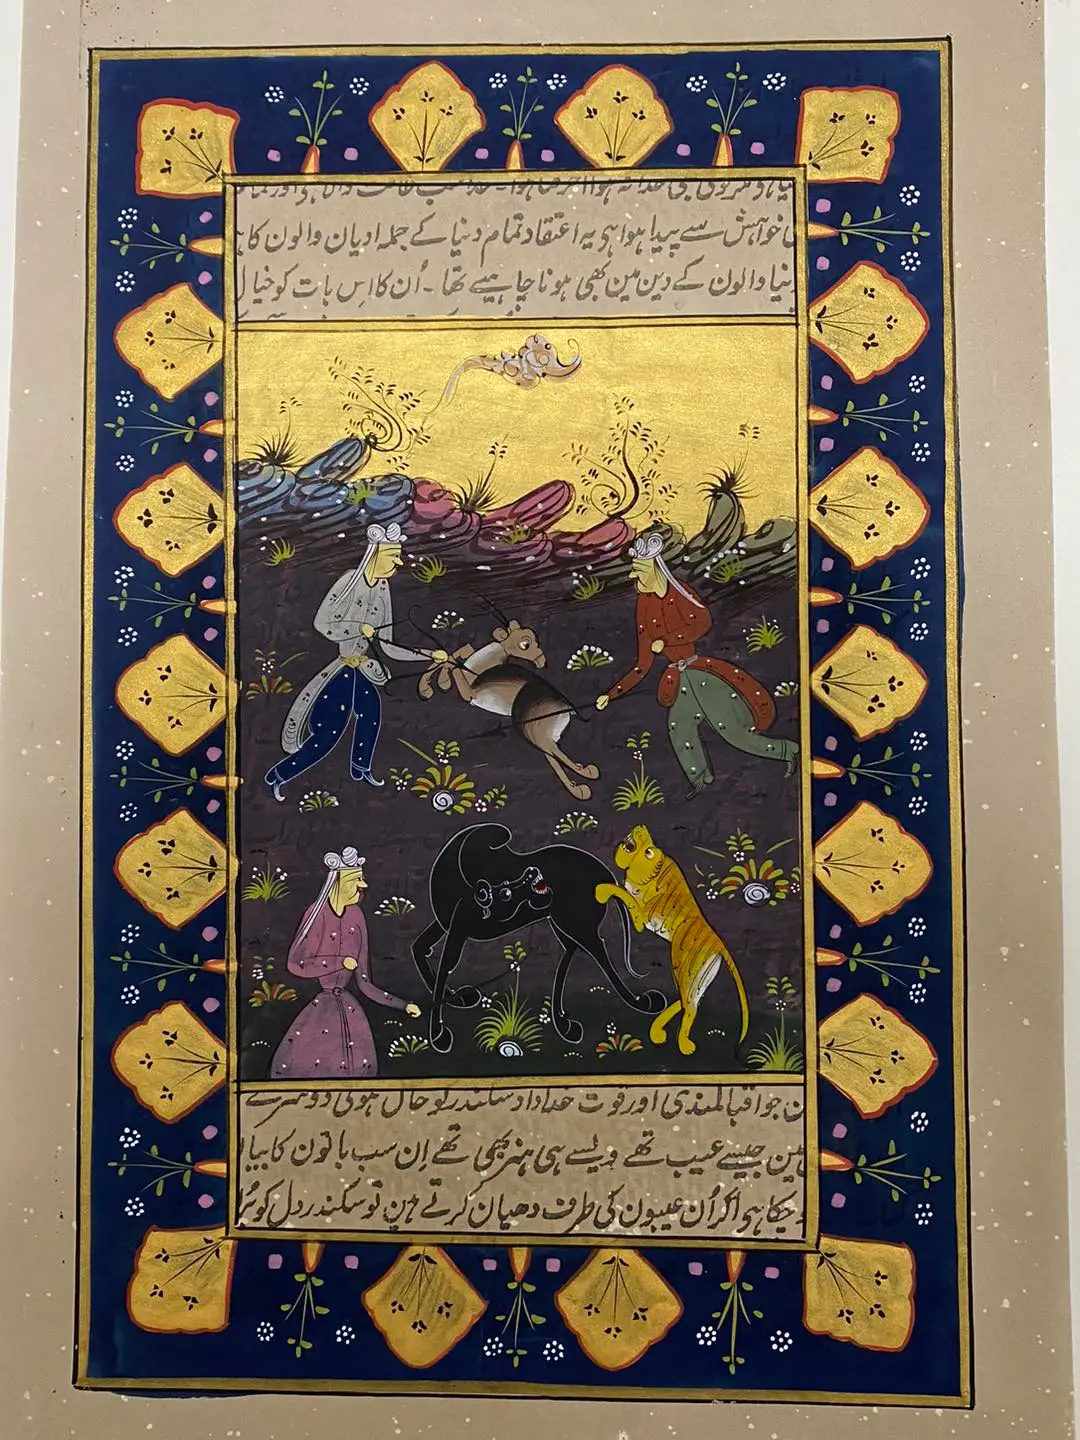 خواہش سے پیدا ہوا ہی یہ اعتقاد تمام دنیا کے جملہ ادیان والون کا
دنیا والون کے دین مین بھی ہونا چاہیے تھا ۔ اُن کا اِس بات کو خیال
جو اقبالمندی اور قوت خداداد سکندر کو حاصل ہوئی دوسرے
مین جیسے عیب تھے ویسے ہی ہنر بھی تھے اِن سب باتون کا بیان
چکا ہی اگر اُن عیبون کی طرف دھیان کرتے ہین تو سکندر دل کو